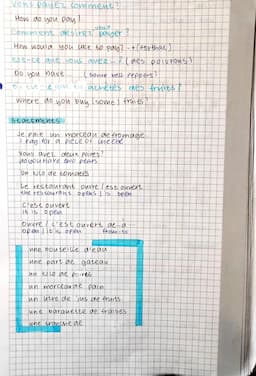 Vous payez comment?
How do you pay?
Comment désirez payer?
How would you like to pay? - + (formal)
Est-ce que vous avez - ? (des poissons)
Do you have
tu achètes des fruits?
Where do you buy (some) fruits?
Statements
Je paie un morceau de fromage
I pay for a piece of cheese
Vous avez deux poires
do you have two pears
Un kilo de tomates
Le restaurant ouvre / est ouvert
the restaurant opens / is open
C'est ouvert
it is open
Ouvre / C'est ouvert de - à
open / it is open from - to
une bouteille d'eau
une part de gâteau
un kilo de poires
un morceau de pain
un litre de jus de fruits
une barquette de fraises
une de